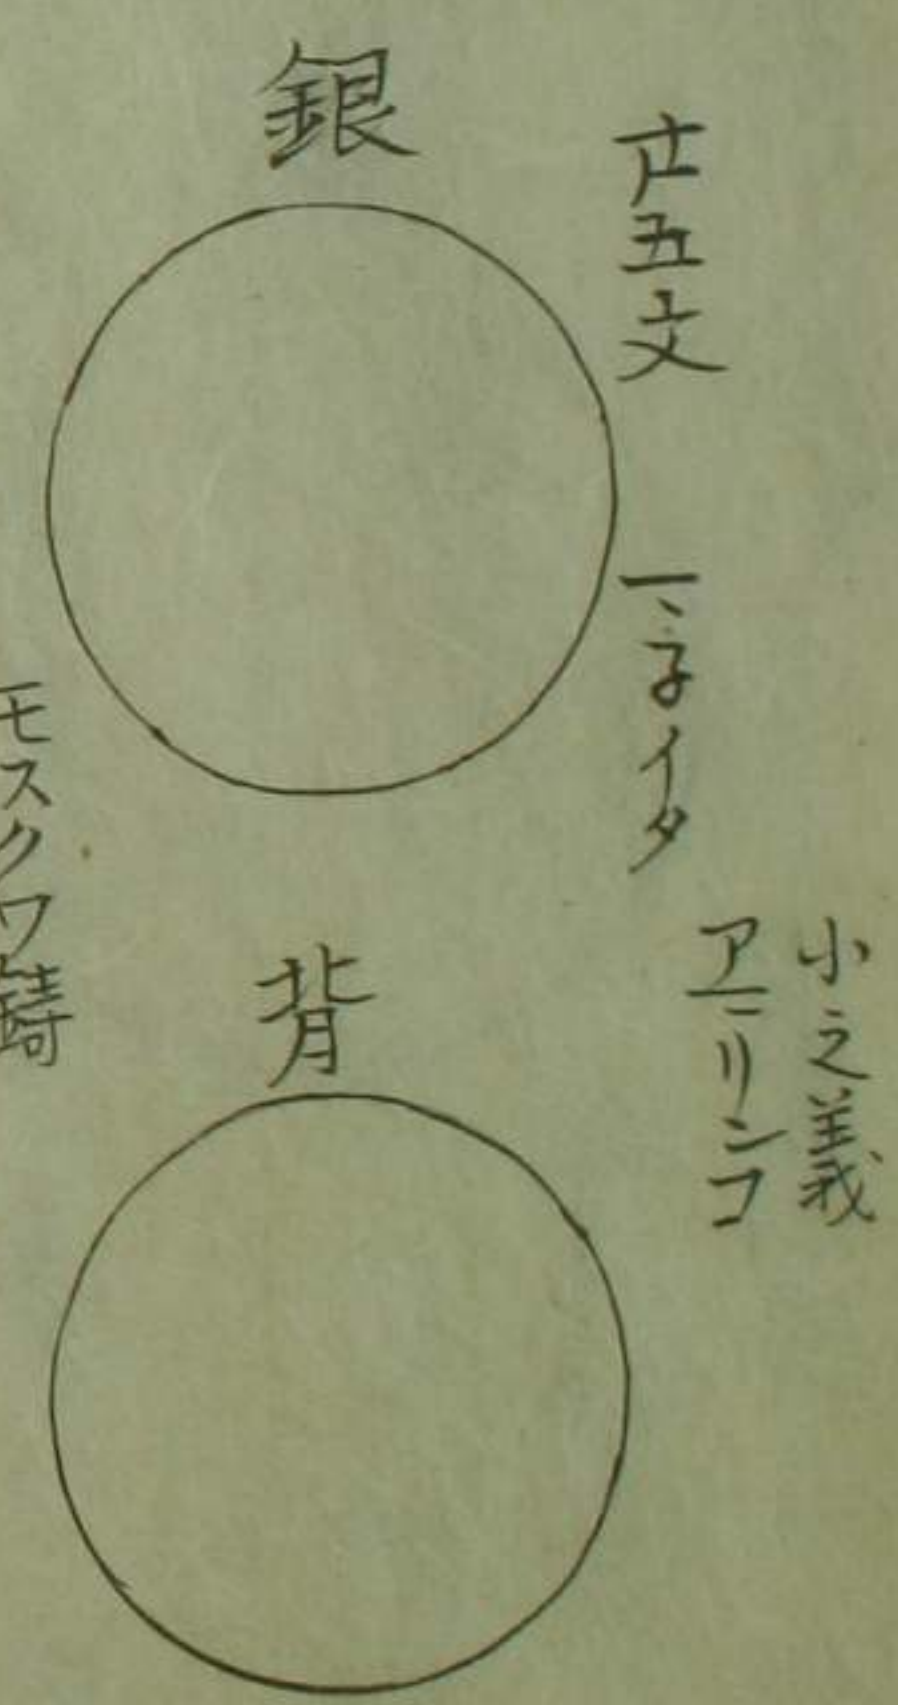 小之義
アマリンコ
廿五文　マ子イタ
銀
背
モスクワ鋳